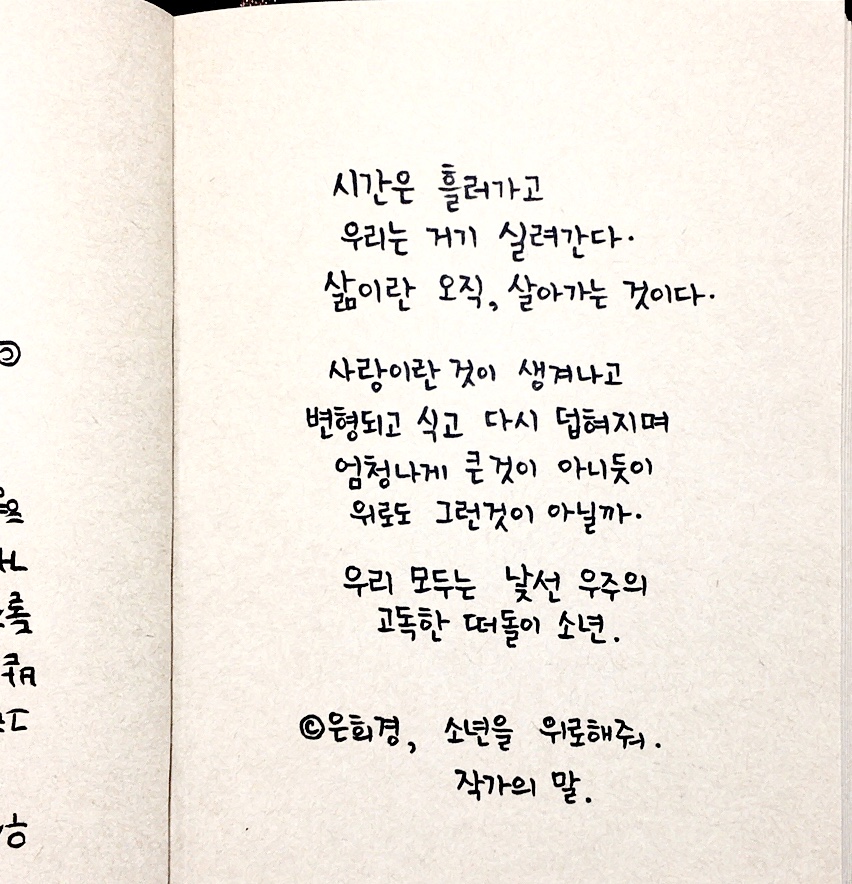 시간은 흘러가고
우리는 거기 실려간다.
삶이란 오직, 살아가는 것이다.
사랑이란 것이 생겨나고
변형되고 식고 다시 덥혀지며
엄청나게 큰것이 아니듯이
위로도 그런것이 아닐까.
우리 모두는 낯선 우주의
고독한 떠돌이 소년.
©은희경, 소년을 위로해줘.
작가의 말.